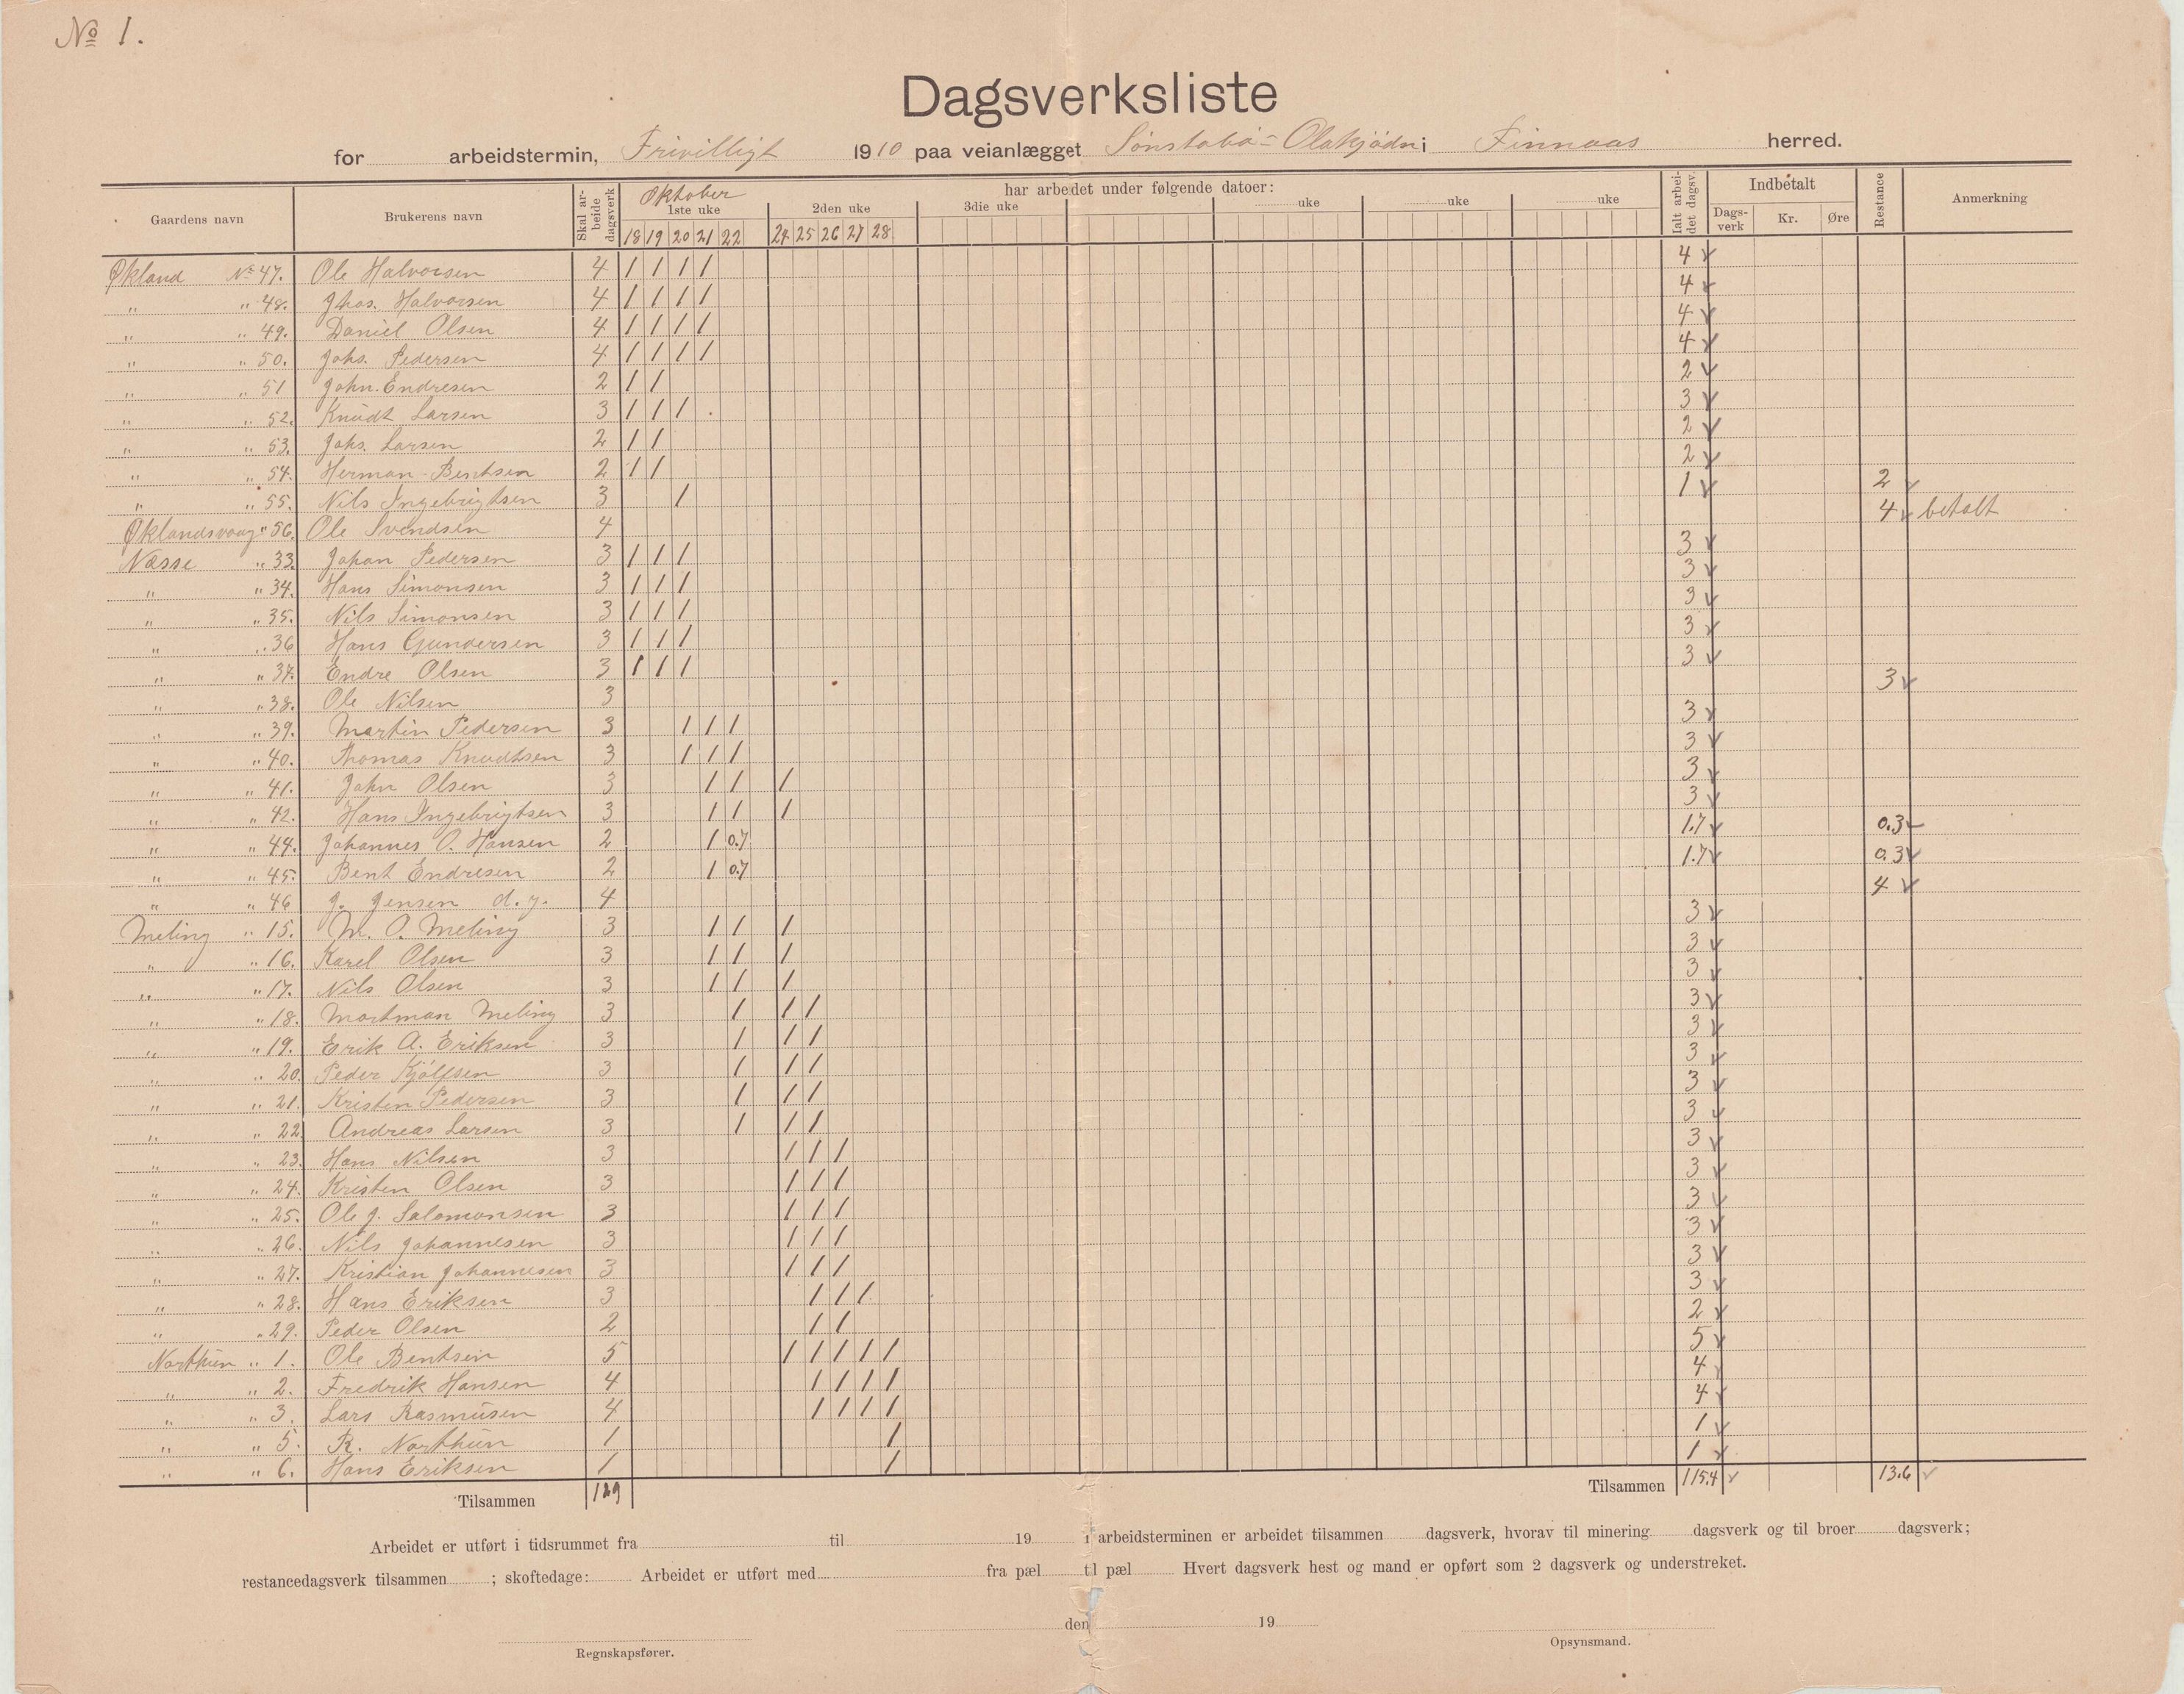 No 1.
Dagsverksliste
for arbeidstermin, Frivilligt 1910 paa veianlægget Sönstabö - Olakjødn i Finnaas herred.
Gaardens navn Brukerens navn Skal arbeide dagsverk Oktober har arbeidet under følgende datoer: Ialt arbeidet dagsv. Indbetalt Restance Anmerkning
1ste uke 2den uke 3die uke uke uke uke Dagsverk Kr. Øre
18 19 20 21 22 24 25 26 27 28
Økland No 47. Ole Halvorsen 4 1 1 1 1 4 ✓
" " 48. Jhos. Halvorsen 4 1 1 1 1 4 ✓
" " 49. Daniel Olsen 4 1 1 1 1 4 ✓
" " 50. Johs. Pedersen 4 1 1 1 1 4 ✓
" " 51 John. Endresen 2 1 1 2 ✓
" " 52. Knudt Larsen 3 1 1 1 . 3 ✓
" " 53. Johs. Larsen 2 1 1 2 ✓
" " 54. Herman Bentsen 2 1 1 2 ✓
" " 55. Nils Ingebrigtsen 3 1 1 ✓ 2 ✓
Øklandsvaag " 56. Ole Svendsen 4 4 ✓ betalt
Næsse " 33. Johan Pedersen 3 1 1 1 3 ✓
" " 34. Hans Simonsen 3 1 1 1 3 ✓
" " 35. Nils Simonsen 3 1 1 1 3 ✓
" " 36 Hans Gundersen 3 1 1 1 3 ✓
" " 37. Endre Olsen 3 1 1 1 3 ✓
" " 38. Ole Nilsen 3 3 ✓
" " 39. Martin Pedersen 3 1 1 1 3 ✓
" " 40. Thomas Knudtsen 3 1 1 1 3 ✓
" " 41. John Olsen 3 1 1 1 3 ✓
" " 42. Hans Ingebrigtsen 3 1 1 1 3 ✓
" " 44. Johannes O. Hansen 2 1 0.7 1.7 ✓ 0.3 ✓
" " 45. Bent Endresen 2 1 0.7 1.7 ✓ 0.3 ✓
" " 46 J. Jensen d. y. 4 4 ✓
Meling " 15. M. O. Meling 3 1 1 1 3 ✓
" " 16. Karel Olsen 3 1 1 1 3 ✓
" " 17. Nils Olsen 3 1 1 1 3 ✓
" " 18. Mortman Meling 3 1 1 1 3 ✓
" " 19. Erik A. Eriksen 3 1 1 1 3 ✓
" " 20. Peder Kjølfsen 3 1 1 1 3 ✓
" " 21. Kristen Pedersen 3 1 1 1 3 ✓
" " 22 Andreas Larsen 3 1 1 1 3 ✓
" " 23. Hans Nilsen 3 1 1 1 3 ✓
" " 24. Kristen Olsen 3 1 1 1 3 ✓
" " 25. Ole J. Salomonsen 3 1 1 1 3 ✓
" " 26. Nils Johannesen 3 1 1 1 3 ✓
" " 27. Kristian Johannesen 3 1 1 1 3 ✓
" " 28. Hans Eriksen 3 1 1 1 3 ✓
" " 29. Peder Olsen 2 1 1 2 ✓
Northun " 1. Ole Bentsen 5 1 1 1 1 1 5 ✓
" " 2. Fredrik Hansen 4 1 1 1 1 4 ✓
" " 3. Lars Rasmusen 4 1 1 1 1 4 ✓
" " 5. R. Northun 1 1 1 ✓
" " 6. Hans Eriksen 1 1 1 ✓
Tilsammen 129 Tilsammen 115.4 ✓ 13.6 ✓
Arbeidet er utført i tidsrummet fra til 19 i arbeidsterminen er arbeidet tilsammen dagsverk, hvorav til minering dagsverk og til broer dagsverk;
restancedagsverk tilsammen ; skoftedage: Arbeidet er utført med fra pæl til pæl Hvert dagsverk hest og mand er opført som 2 dagsverk og understreket.
den 19
Regnskapsfører. Opsynsmand.